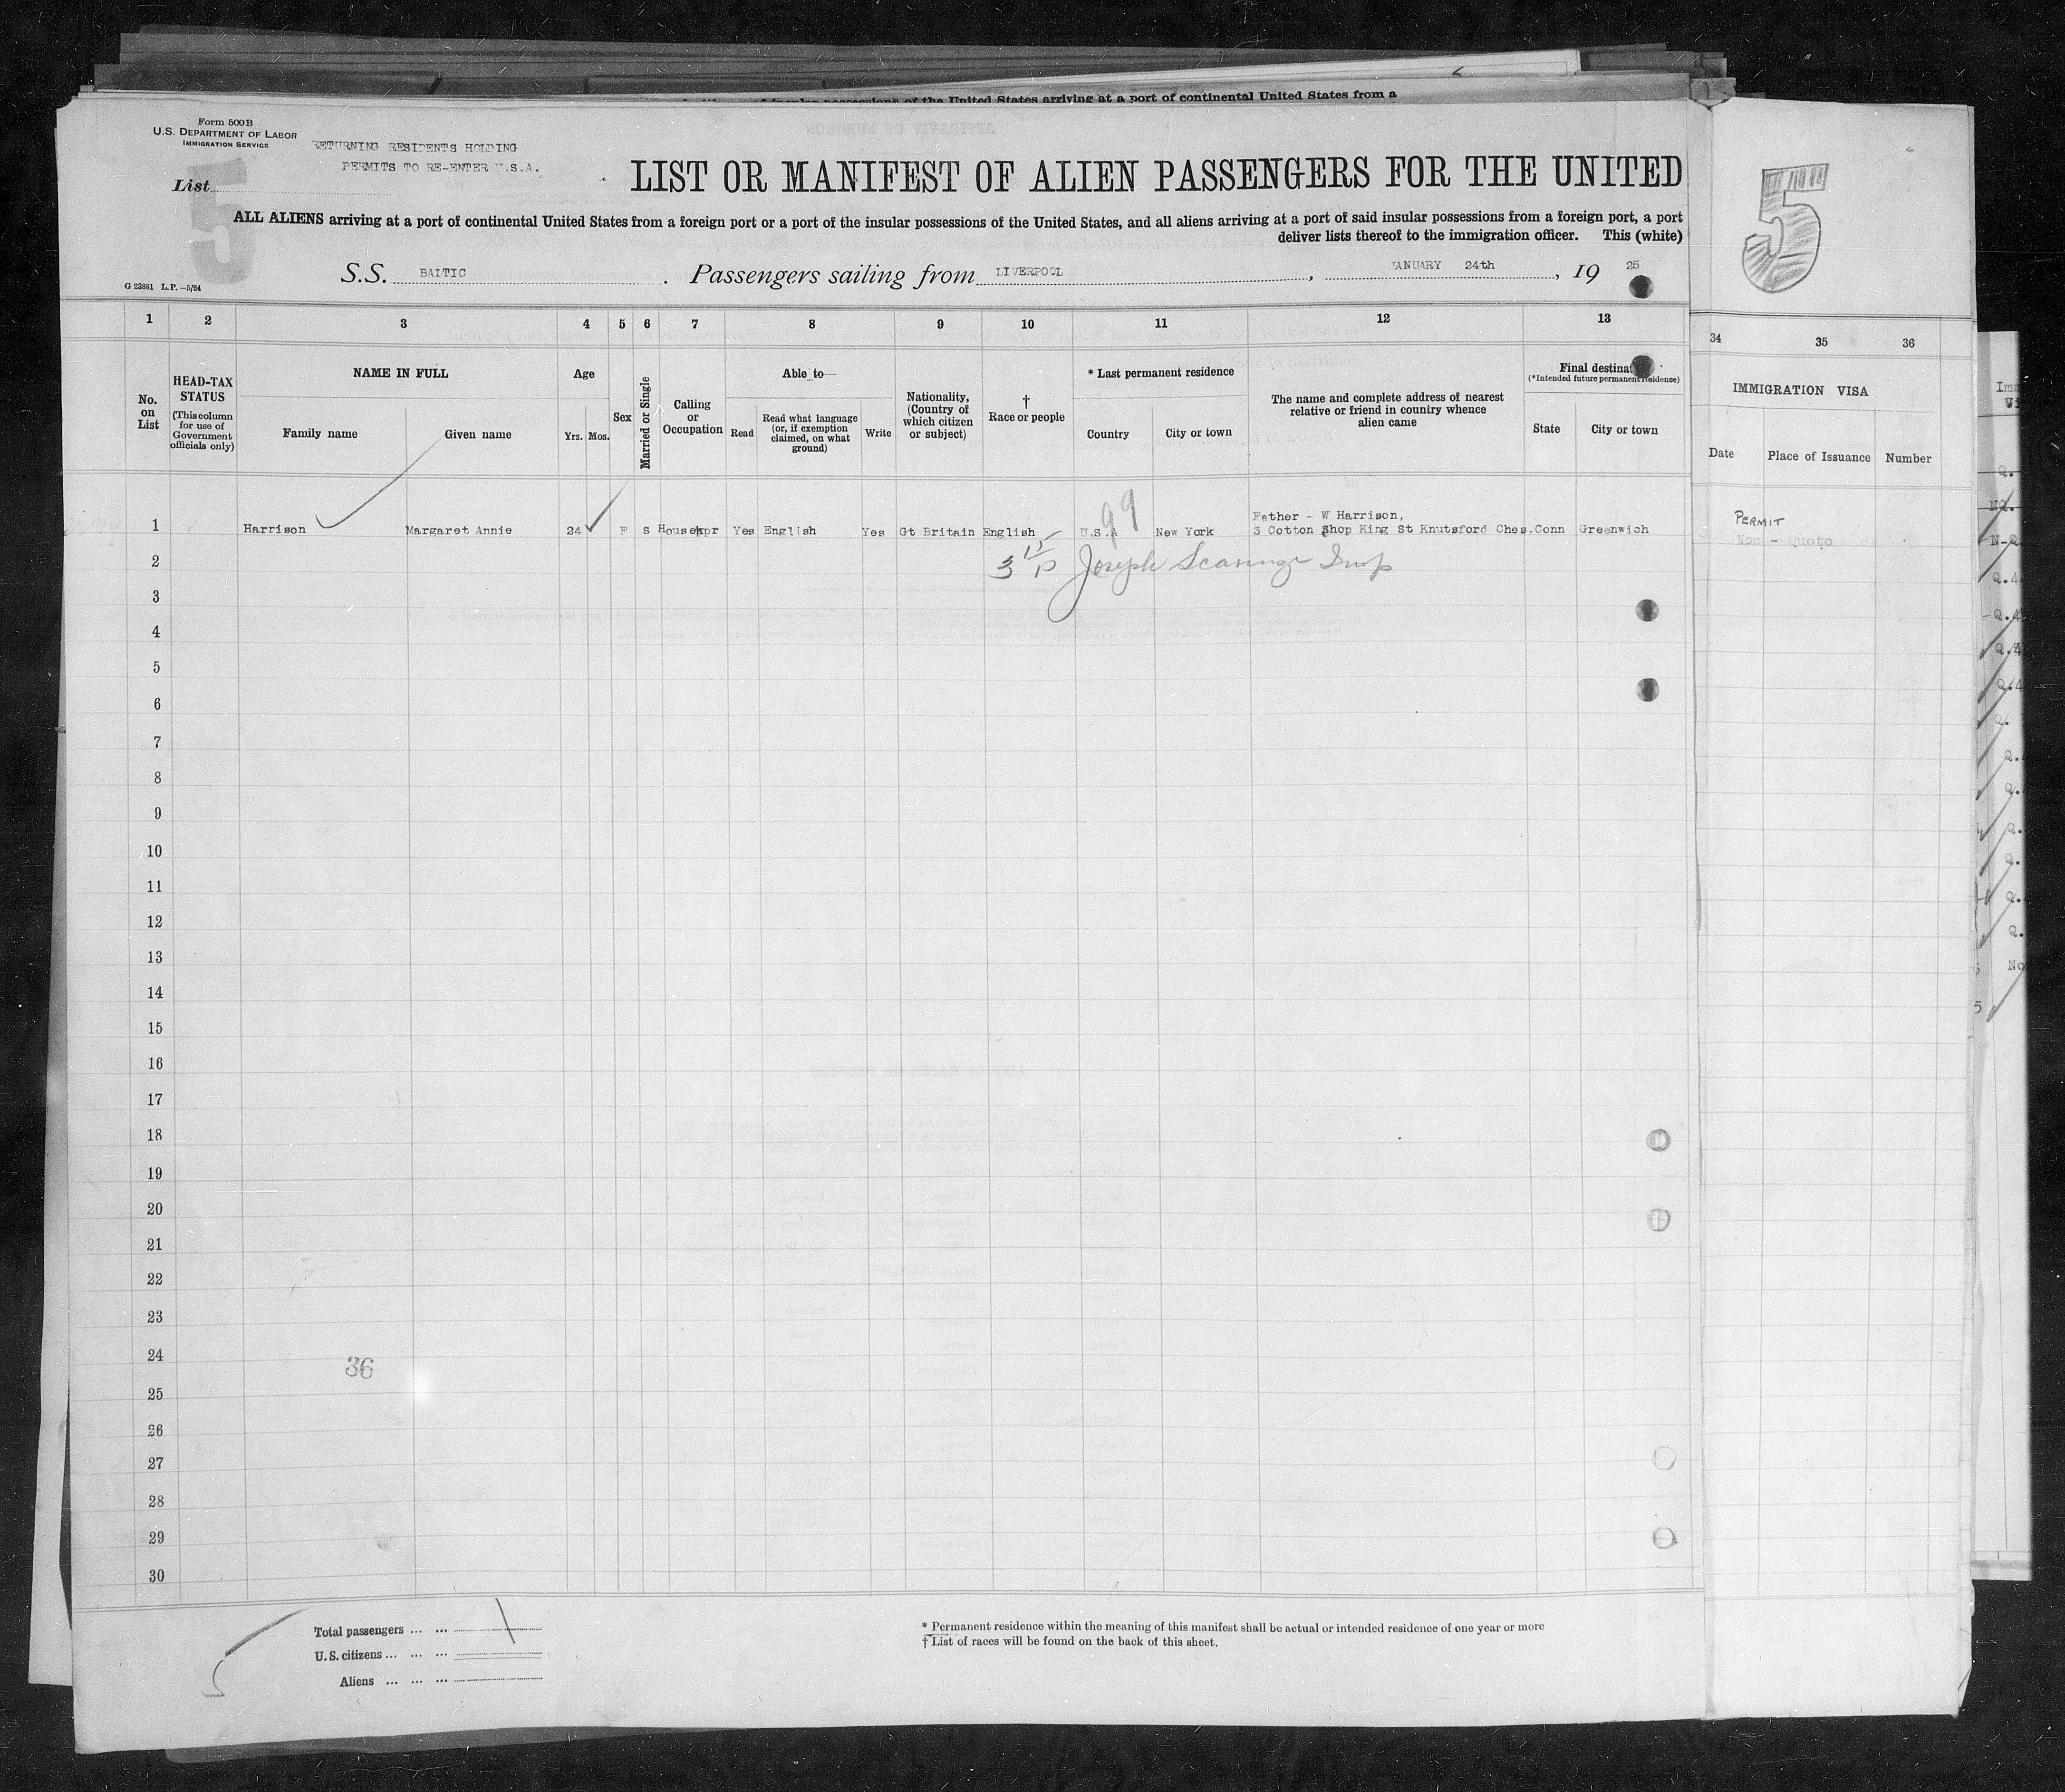 of the United States arriving at a port of continental United States from a
Form 500B
U.S. DEPARTMENT OF LABOR
IMMIGRATION SERVICE
RETURNING RESIDENTS HOLDING
PERMITS TO RE-ENTER U.S.A.
List
5
LIST OR MANIFEST OF ALIEN PASSENGERS FOR THE UNITED
5
ALL ALIENS arriving at a port of continental United States from a foreign port or a port of the insular possessions of the United States, and all aliens arriving at a port of said insular possessions from a foreign port, a port
deliver lists thereof to the immigration officer. This (white)
S.S. BALTIC. Passengers sailing from LIVERPOOL, JANUARY 24th, 19 25
G 23881 L.P.—5/24
1 2 3 4 5 6 7 8 9 10 11 12 13 34 35 36
No. on List
HEAD-TAX STATUS
(This column for use of Government officials only)
NAME IN FULL
Family name Given name
Age
Yrs. Mos.
Sex
Married or Single
Calling or Occupation
Able to—
Read
Read what language (or, if exemption claimed, on what ground)
Write
Nationality, (Country of which citizen or subject)
† Race or people
* Last permanent residence
Country City or town
The name and complete address of nearest relative or friend in country whence alien came
Final destinat
(*Intended future permanent residence)
State City or town
IMMIGRATION VISA
Date Place of Issuance Number
99
Father - W Harrison,
1 Harrison Margaret Annie 24 F S Housekpr Yes English Yes Gt Britain English U.S.A New York 3 Cotton Shop King St Knutsford Ches. Conn Greenwich
PERMIT
Non - Quota
2 Joseph
3
4
5
6
7
8
9
10
11
12
13
14
15
16
17
18
19
20
21
22
23
24
36
25
26
27
28
29
30
Total passengers ... ...
U.S. citizens ... ... ...
Aliens ... ... ...
* Permanent residence within the meaning of this manifest shall be actual or intended residence of one year or more
† List of races will be found on the back of this sheet.